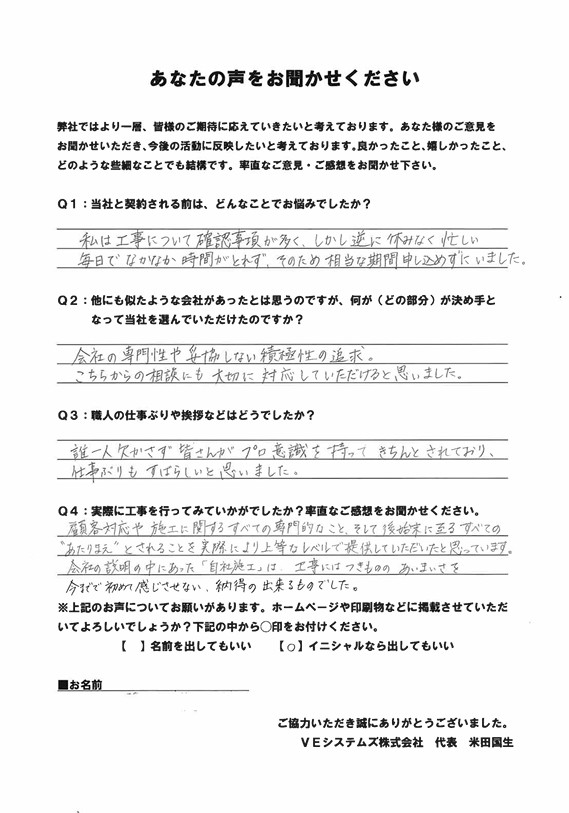 あなたの声をお聞かせください
弊社ではより一層、皆様のご期待に応えていきたいと考えております。あなた様のご意見を
お聞かせいただき、今後の活動に反映したいと考えております。良かったこと、嬉しかったこと、
どのような些細なことでも結構です。率直なご意見・ご感想をお聞かせ下さい。
Q1：当社と契約される前は、どんなことでお悩みでしたか？
私は工事について確認事項が多く、しかし逆に休みなく忙しい
毎日でなかなか時間がとれず、そのため相当な期間申し込めずにいました。
Q2：他にも似たような会社があったとは思うのですが、何が（どの部分）が決め手と
なって当社を選んでいただけたのですか？
会社の専門性や妥協しない積極性の追求。
こちらからの相談にも大切に対応していただけると思いました。
Q3：職人の仕事ぶりや挨拶などはどうでしたか？
誰一人欠かさず皆さんがプロ意識を持ってきちんとされており、
仕事ぶりもすばらしいと思いました。
Q4：実際に工事を行ってみていかがでしたか？率直なご感想をお聞かせください。
顧客対応や施工に関するすべての専門的なこと、そして後始末に至るすべての
"あたりまえ"とされることを実際により上等なレベルで提供していただいたと思っています。
会社の説明の中にあった「自社施工」は、工事にはつきものの あいまいさを
今までで初めて感じさせない、納得の出来るものでした。
※上記のお声についてお願いがあります。ホームページや印刷物などに掲載させていただ
いてよろしいでしょうか？下記の中から〇印をお付けください。
【　】名前を出してもいい　【○】イニシャルなら出してもいい
■お名前
ご協力いただき誠にありがとうございました。
VEシステムズ株式会社　代表　米田国生